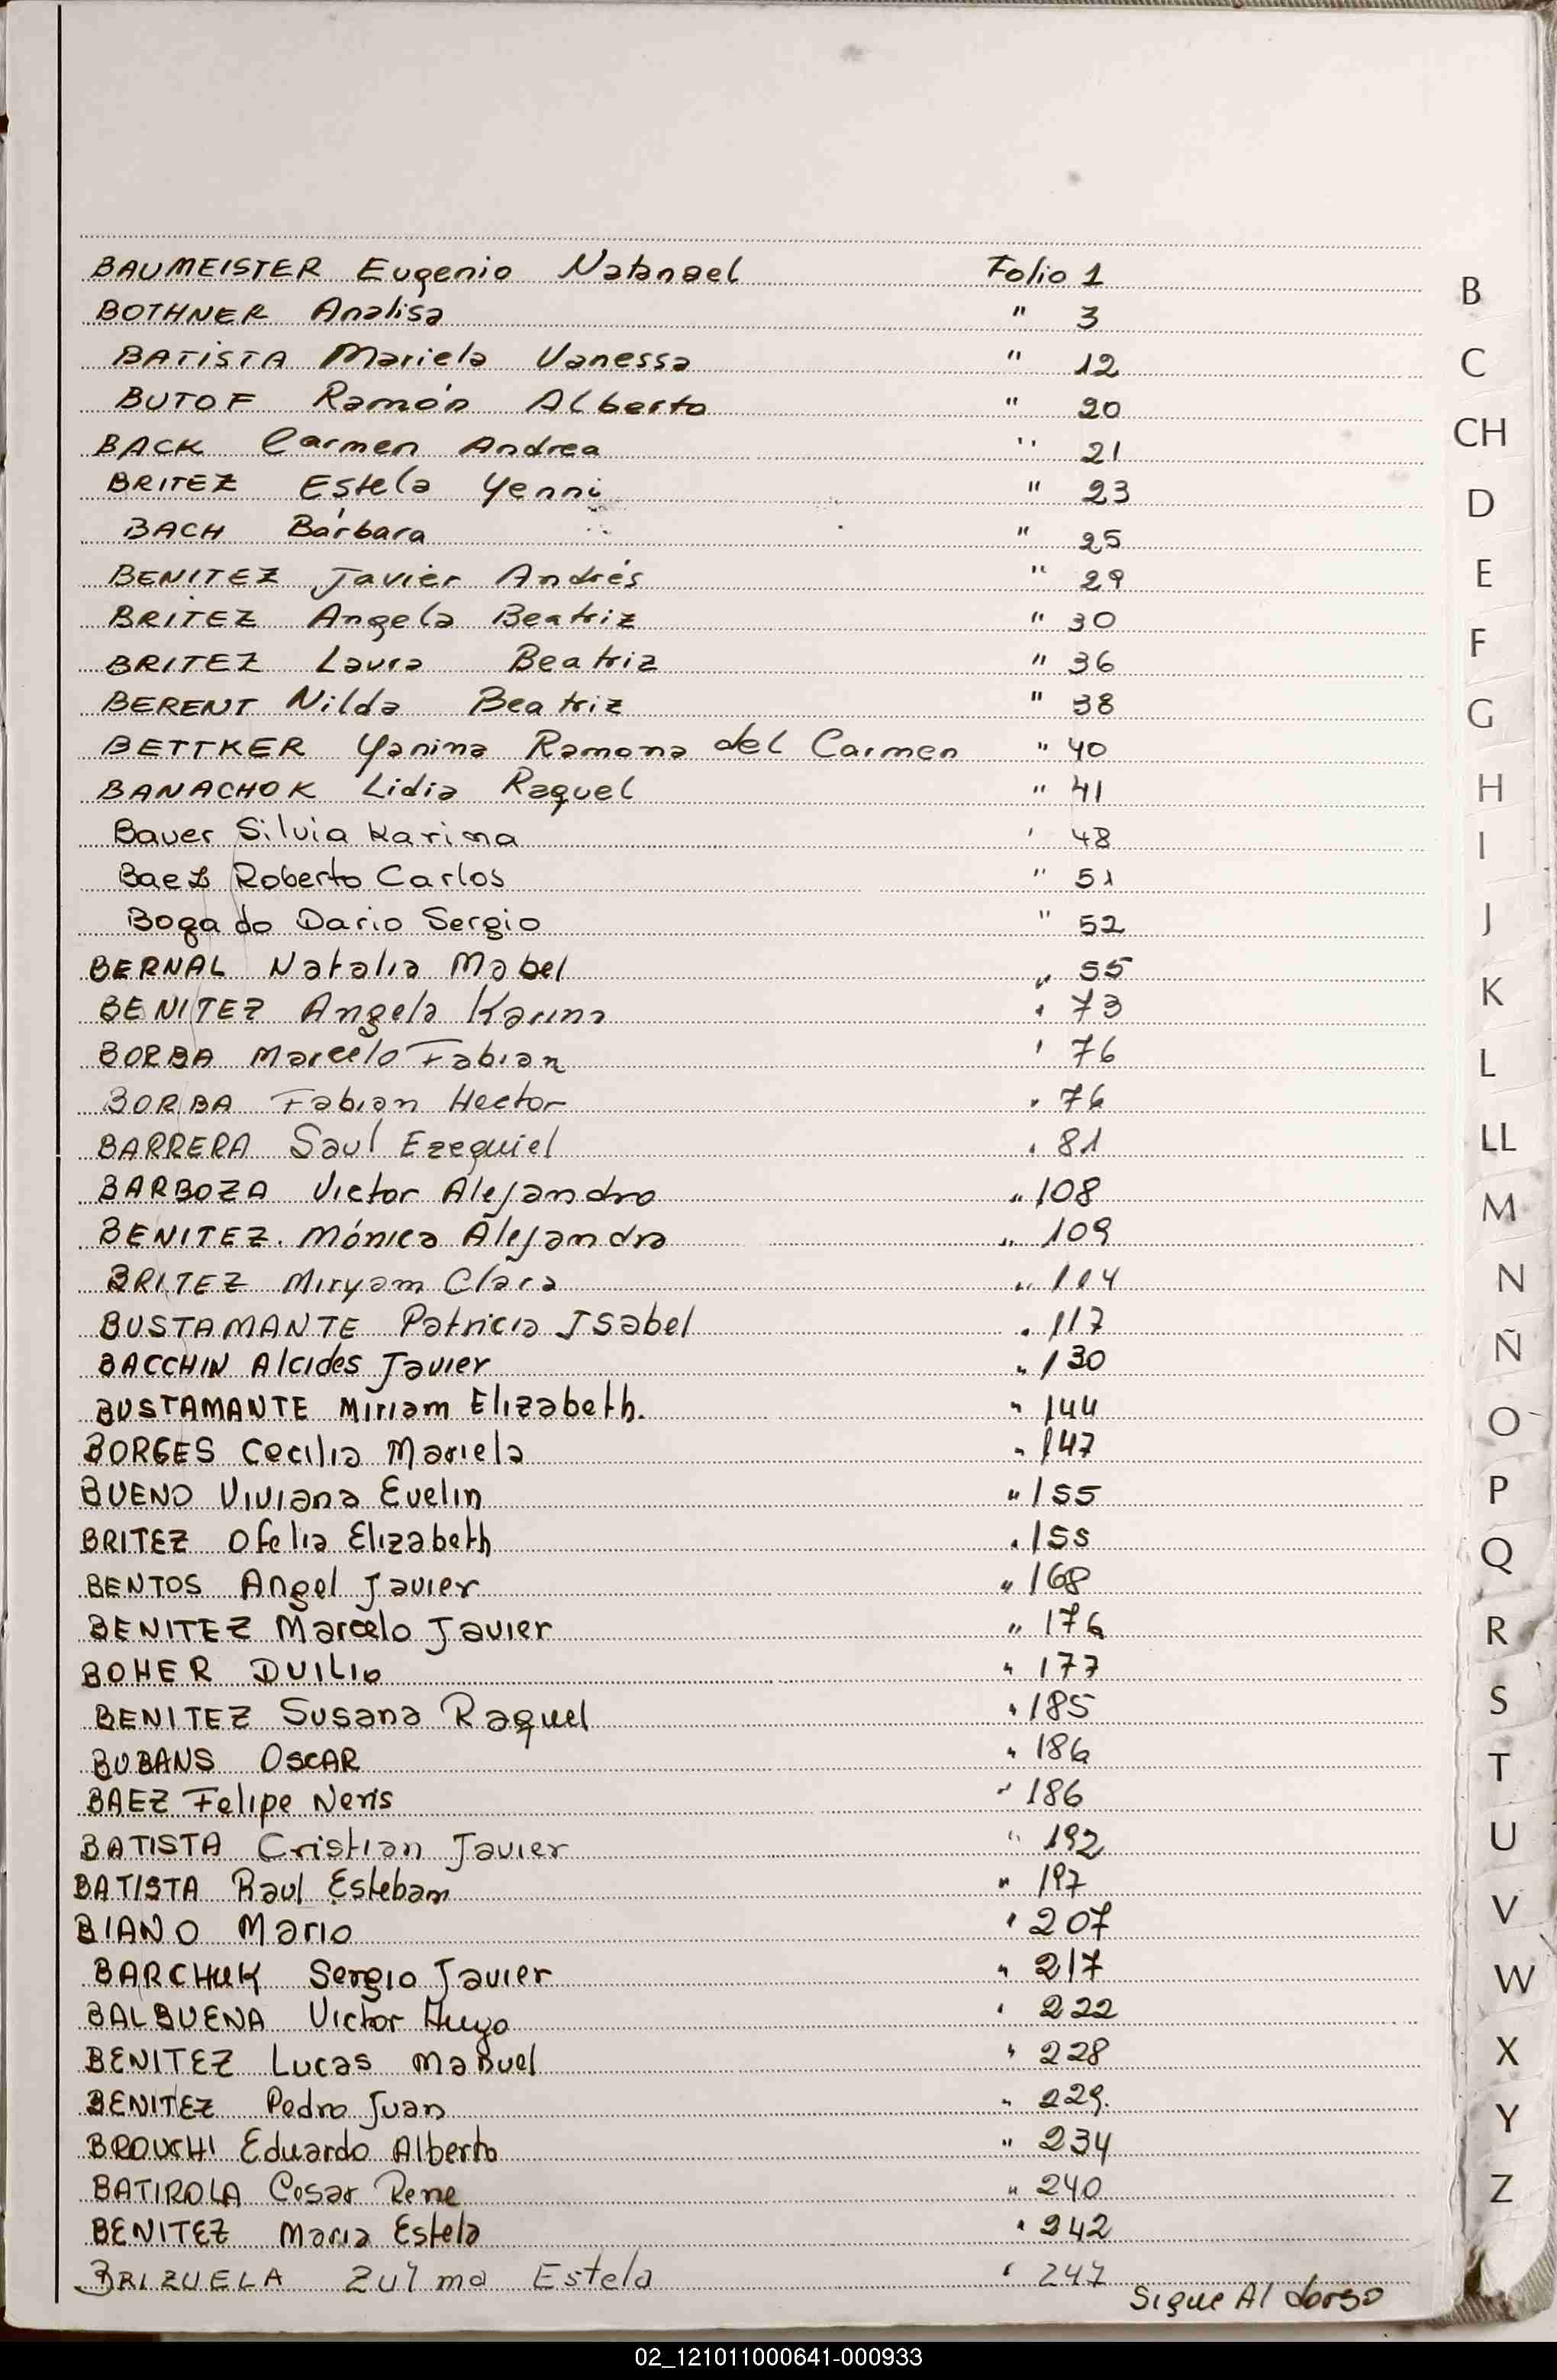 BAUMEISTER Eugenio Natanael Folio 1
BOTHNER Analisa " 3
BATISTA Mariela Vanessa " 12
BUTOF Ramón Alberto " 20
BACK Carmen Andrea " 21
BRITEZ Estela Yenni " 23
BACH Bárbara " 25
BENITEZ Javier Andrés " 29
BRITEZ Angela Beatriz " 30
BRITEZ Laura Beatriz " 36
BERENT Nilda Beatriz " 38
BETTKER Yanina Ramona del Carmen " 40
BANACHOK Lidia Raquel " 41
Bauer Silvia Karina " 48
Baez Roberto Carlos " 51
Bogado Dario Sergio " 52
BERNAL Natalia Mabel " 55
BENITEZ Angela Karina " 73
BORBA Marcelo Fabian " 76
BORBA Fabian Hector " 76
BARRERA Saul Ezequiel " 81
BARBOZA Victor Alejandro " 108
BENITEZ. Mónica Alejandra " 109
BRITEZ Miryam Clara " 114
BUSTAMANTE Patricia Isabel " 117
BACCHIN Alcides Javier " 130
BUSTAMANTE Miriam Elizabeth. " 144
BORGES Cecilia Mariela " 147
BUENO Viviana Evelin " 155
BRITEZ Ofelia Elizabeth " 155
BENTOS Angel Javier " 168
BENITEZ Marcelo Javier " 176
BOHER DUILIO " 177
BENITEZ Susana Raquel " 185
BUBANS OSCAR " 186
BAEZ Felipe Neris " 186
BATISTA Cristian Javier " 192
BATISTA Raul Esteban " 197
BIANO Mario " 207
BARCHUK Sergio Javier " 217
BALBUENA Victor Hugo " 222
BENITEZ Lucas Manuel " 228
BENITEZ Pedro Juan " 229.
BROUCHI Eduardo Alberto " 234
BATIROLA Cesar Rene " 240
BENITEZ Maria Estela " 242
BRIZUELA Zulma Estela " 247
Sigue Al dorso
B
C
CH
D
E
F
G
H
I
J
K
L
LL
M
N
Ñ
O
P
Q
R
S
T
U
V
W
X
Y
Z
02_121011000641-000933